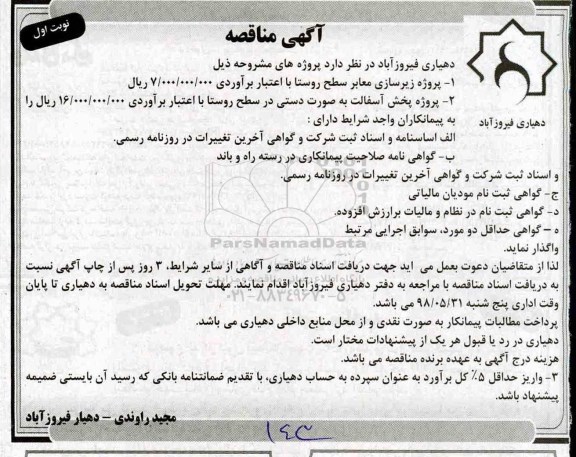 نوبت اول
آگهی مناقصه
دهیاری فیروزآباد
دهیاری فیروزآباد در نظر دارد پروژه های مشروحه ذیل
۱- پروژه زیرسازی معابر سطح روستا با اعتبار برآوردی ۷/۰۰۰/۰۰۰/۰۰۰ ریال
۲- پروژه پخش آسفالت به صورت دستی در سطح روستا با اعتبار برآوردی ۱۶/۰۰۰/۰۰۰/۰۰۰ ریال را
به پیمانکاران واجد شرایط دارای :
الف اساسنامه و اسناد ثبت شرکت و گواهی آخرین تغییرات در روزنامه رسمی.
ب- گواهی نامه صلاحیت پیمانکاری در رسته راه و باند
و اسناد ثبت شرکت و گواهی آخرین تغییرات در روزنامه رسمی.
ج- گواهی ثبت نام مودیان مالیاتی
د- گواهی ثبت نام در نظام و مالیات برارزش افزوده.
ه – گواهی حداقل دو مورد، سوابق اجرایی مرتبط
واگذار نماید.
لذا از متقاضیان دعوت بعمل می اید جهت دریافت اسناد مناقصه و آگاهی از سایر شرایط، ۳ روز پس از چاپ آگهی نسبت
به دریافت اسناد مناقصه با مراجعه به دفتر دهیاری فیروزآباد اقدام نمایند. مهلت تحویل اسناد مناقصه به دهیاری تا پایان
وقت اداری پنج شنبه ۹۸/۰۵/۳۱ می باشد.
پرداخت مطالبات پیمانکار به صورت نقدی و از محل منابع داخلی دهیاری می باشد.
دهیاری در رد یا قبول هر یک از پیشنهادات مختار است.
هزینه درج آگهی به عهده برنده مناقصه می باشد.
۳- واریز حداقل ۵٪ کل برآورد به عنوان سپرده به حساب دهیاری، با تقدیم ضمانتنامه بانکی که رسید آن بایستی ضمیمه
پیشنهاد باشد.
مجید راوندی – دهیار فیروزآباد
ParsNamadData
۰۲۱-۸۸۳۴۹۶۷۰-۵